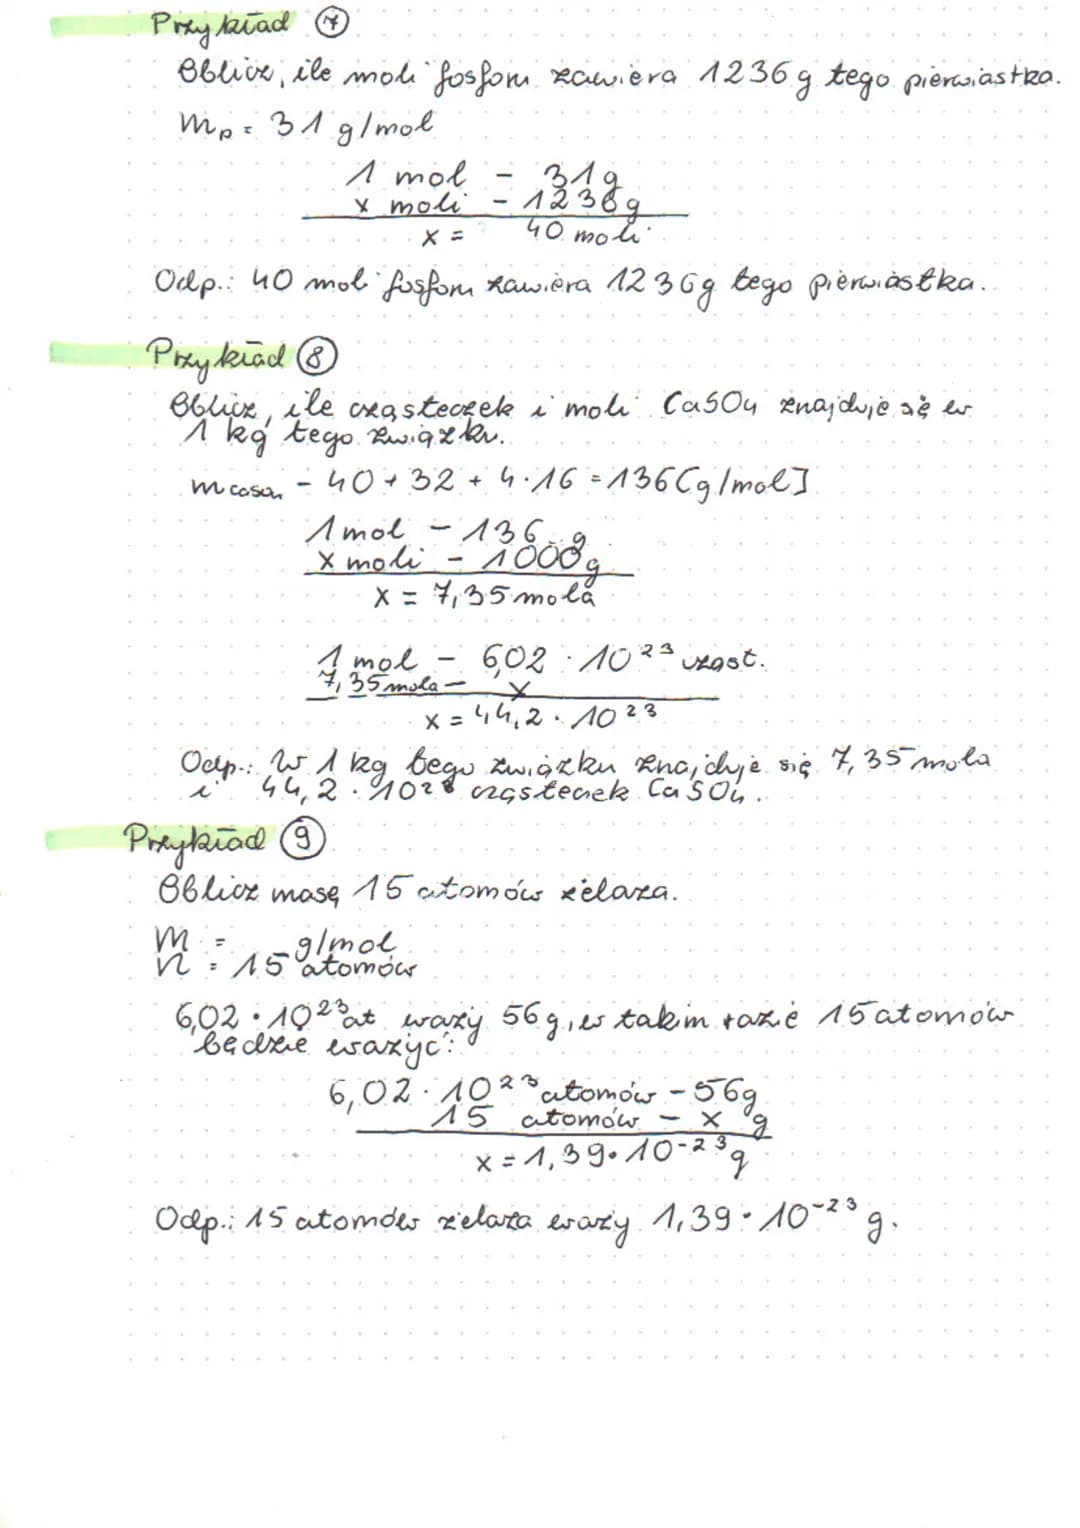 Przykład 7
Oblicz, ile moli fosforu zawiera 1236 g tego pierwiastka.
Mp = 31 g/mol
1 mol - 31g
x moli - 1236g
x = 40 moli
Odp.: 40 moli fosforu zawiera 1236g tego pierwiastka.
Przykład 8
Oblicz, ile cząsteczek i moli CaSO4 znajduje się w
1 kg tego związku.
mCaSO4 - 40 + 32 + 4·16 = 136 [g/mol]
1 mol - 136 g
x moli - 1000g
x = 7,35 mola
1 mol - 6,02 · 10²³ cząst.
7,35 mola - x
x = 44,2 · 10²³
Odp.: W 1 kg tego związku znajduje się 7,35 mola
i 44,2 · 10²³ cząsteczek CaSO4.
Przykład 9
Oblicz masę 15 atomów żelaza.
M = g/mol
n = 15 atomów
6,02 · 10²³ at waży 56g, w takim razie 15 atomów
będzie ważyć:
6,02 · 10²³ atomów - 56g
15 atomów - x g
x = 1,39 · 10⁻²³ g
Odp.: 15 atomów żelaza waży 1,39 · 10⁻²³ g.